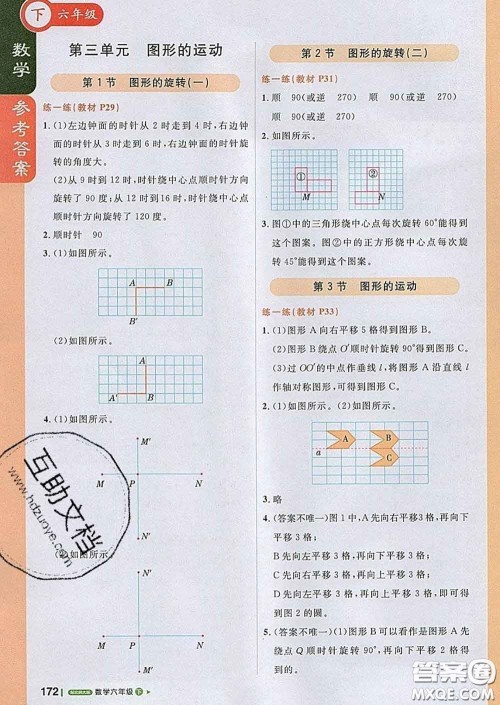 下 六年级
数学
参考答案
第三单元 图形的运动
第1节 图形的旋转(一)
练一练(教材 P29)
1. (1)左边钟面的时针从 2 时走到 4 时,右边钟
面的时针从 3 时走到 6 时,右边钟面的时针旋
转的角度大。
(2)从 9 时到 12 时,时针绕中心点顺时针方向
旋转了 90 度;从 12 时到 16 时,时针绕中心点顺
时针方向旋转了 120 度。
2. 顺时针 90
3. (1)如图所示。
A B
B′
(2)如图所示。
A
A′ B
4. (1)如图所示。
M′
M P N
N′
(2)如图所示。
M′
M P N
N′
172 数学六年级 下
第2节 图形的旋转(二)
练一练(教材 P31)
1. 顺 90(或逆 270) 顺 90(或逆 270)
2. 如图所示。
① ②
M N
3. 图①中的三角形绕中心点每次旋转 60°能得到
这个图案。图②中的正方形绕中心点每次
旋转 45°能得到这个图案。
第3节 图形的运动
练一练(教材 P33)
1. (1)图形 A 向右平移 5 格得到图形 B。
(2)图形 B 绕点 O′顺时针旋转 90°得到图形 C。
(3)过 OO′的中点作垂线 l,将图形 A 沿直线 l
作轴对称图形,可得到图形 C。
2. 如图所示。
A B
a C
3. 略
4. (答案不唯一)图 1 中,A 先向右平移 3 格,再向
下平移 3 格;
B 先向左平移 3 格,再向下平移 3 格;
C 先向右平移 3 格,再向上平移 3 格;
D 先向左平移 3 格,再向上平移 3 格,即可得
到图 2 的圆。
5. (答案不唯一)可以看作是图形 A 先
绕点 Q 顺时针旋转 90°,再
得到的。
互助文档
www.hdzuoye.com
答案圈
MXQE.COM